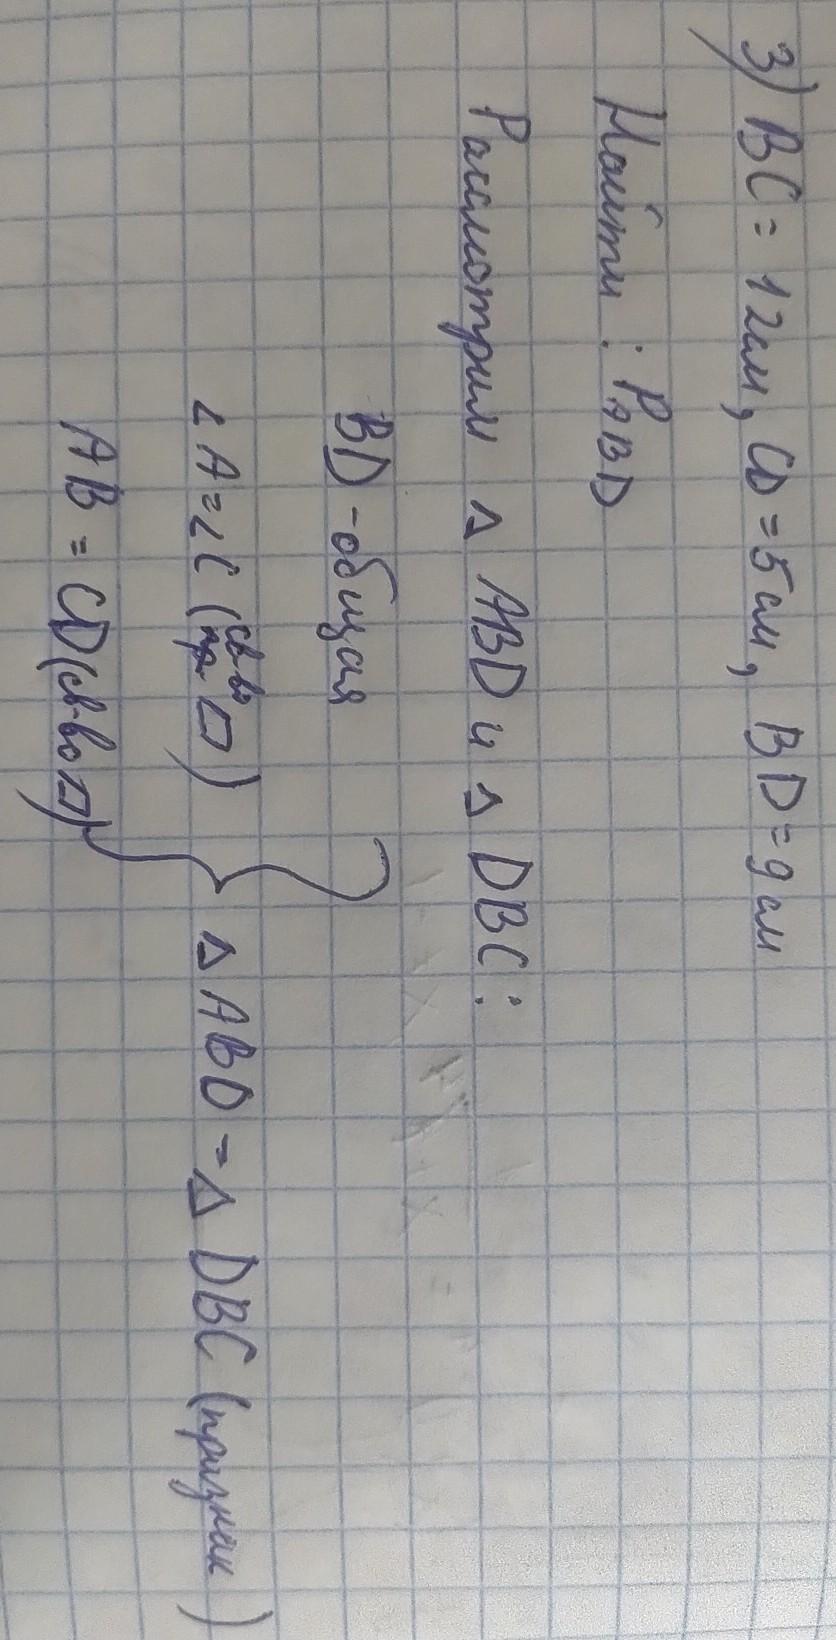 3) BC = 12см, CD = 5см, BD = 9см
Найти : P_ABD
Рассмотрим △ ABD и △ DBC :
BD - общая
∠A = ∠C (св-во ▱)
△ ABD = △ DBC (признак)
AB = CD (св-во ▱)